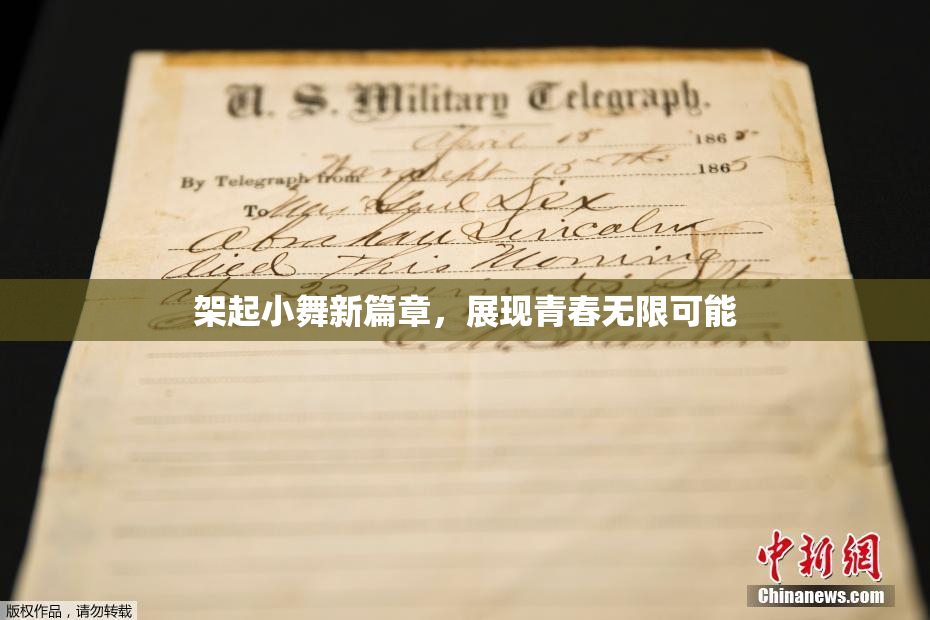 U. S. Military Telegraph.
April 15 1865
By Telegraph from War Dept 15th 1865
To Maj Genl Dix
Abraham Lincoln
died This Morning
at 22 minutes after
架起小舞新篇章，展现青春无限可能
E. M. Stanton
中新網
Chinanews.com
版权作品，请勿转载